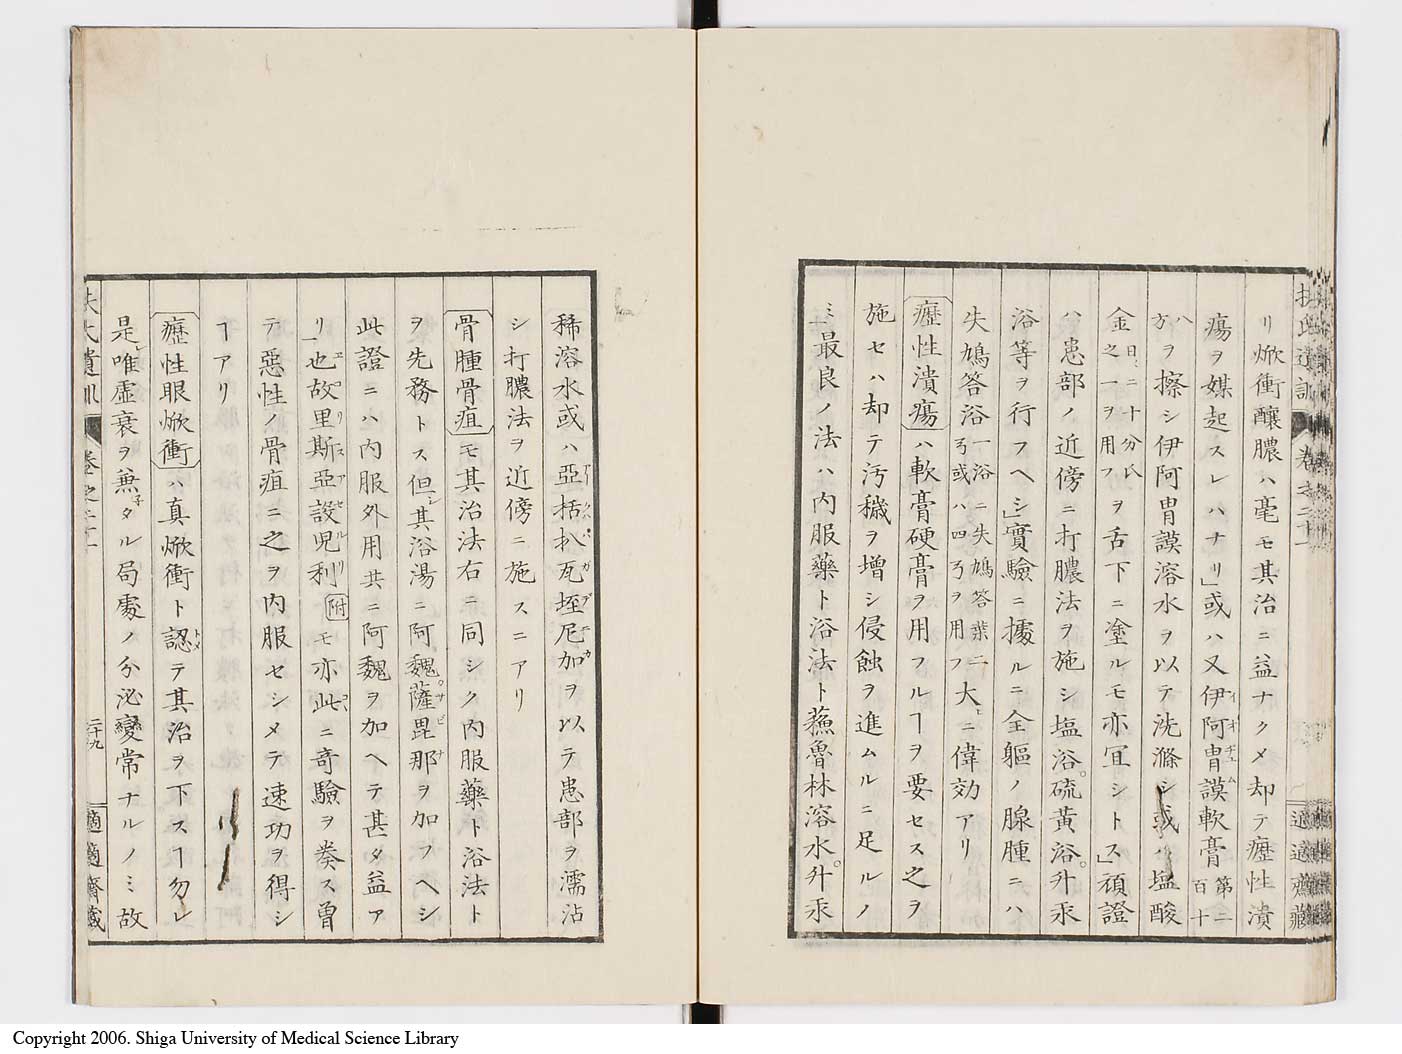 リ焮衝釀膿ハ毫モ其治ニ益ナクメ却テ瘰性潰
瘍ヲ媒起スレハナリ」或ハ又伊阿冑謨軟膏第二百十
ハ方ヲ擦シ伊阿冑謨溶水ヲ以テ洗滌シ或ハ塩酸
金日ニ二十分氏之一ヲ用フヲ舌下ニ塗ルモ亦宜シトス」頑證
ハ患部ノ近傍ニ打膿法ヲ施シ塩浴。硫黄浴。升汞
浴等ヲ行フヘシ」實驗ニ據ルニ全軀ノ腺腫ニハ
失鳩答浴一浴ニ失鳩答葉二弓或ハ四弓ヲ用フ大ニ偉効アリ
瘰性潰瘍ハ軟膏硬膏ヲ用フルヿヲ要セス之ヲ
施セハ却テ汚穢ヲ增シ侵蝕ヲ進ムルニ足ルノ
ミ最良ノ法ハ内服藥ト浴法ト蕬魯林溶水。升汞
扶氏遺訓 卷之二十一 適適齋藏
稀溶水或ハ亞括扒瓦垤尼加ヲ以テ患部ヲ濡沾
シ打膿法ヲ近傍ニ施スニアリ
骨腫骨疽モ其治法右ニ同シク内服藥ト浴法ト
ヲ先務トス但シ其浴湯ニ阿魏。薩毘那ヲ加フヘシ
此證ニハ内服外用共ニ阿魏ヲ加ヘテ甚タ益ア
リ也故里斯亞設児利附モ亦此ニ奇驗ヲ奏ス曽
テ惡性ノ骨疽ニ之ヲ内服セシメテ速功ヲ得シ
ヿアリ
瘰性眼焮衝ハ真焮衝ト認メテ其治ヲ下スヿ勿レ
是レ唯虚衰ヲ兼子タル局處ノ分泌變常ナルノミ故
扶氏遺訓 卷之二十一 二十九 適適齋藏
Copyright 2006. Shiga University of Medical Science Library